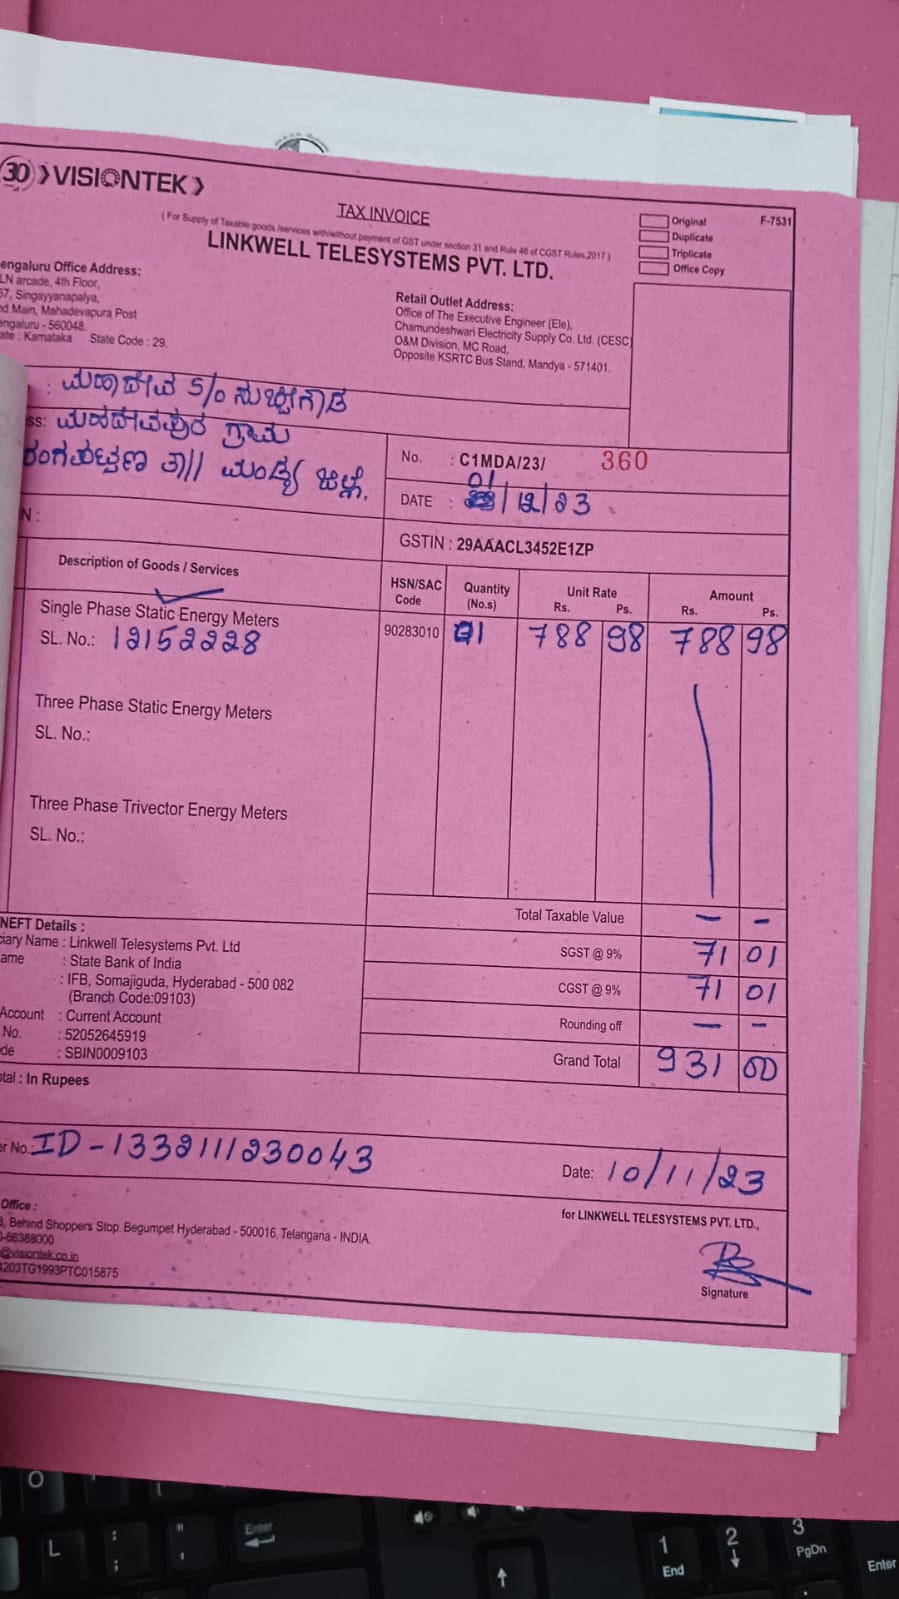 30 VISIONTEK
TAX INVOICE
( For Supply of Taxable goods /services with/without payment of GST under section 31 and Rule 46 of CGST Rules,2017 )
LINKWELL TELESYSTEMS PVT. LTD.
Original
Duplicate
Triplicate
Office Copy
F-7531
engaluru Office Address:
LN arcade, 4th Floor,
57, Singayyanapalya,
nd Main, Mahadevapura Post
engaluru - 560048.
ate : Karnataka State Code : 29.
Retail Outlet Address:
Office of The Executive Engineer (Ele),
Chamundeshwari Electricity Supply Co. Ltd. (CESC)
O&M Division, MC Road,
Opposite KSRTC Bus Stand, Mandya - 571401.
: ಮಹಾದೇವ S/o ಸುಬ್ಬೇಗೌಡ
ss: ಮಹದೇವಪುರ ಗ್ರಾಮ
ಮಂಡ್ಯ ಜಿಲ್ಲೆ.
No. : C1MDA/23/ 360
DATE : 01/12/23
N :
GSTIN : 29AAACL3452E1ZP
Description of Goods / Services HSN/SAC Code Quantity (No.s) Unit Rate Rs. Ps. Amount Rs. Ps.
Single Phase Static Energy Meters
SL. No.: 12152228 90283010 01 788 98 788 98
Three Phase Static Energy Meters
SL. No.:
Three Phase Trivector Energy Meters
SL. No.:
Total Taxable Value — —
SGST @ 9% 71 01
CGST @ 9% 71 01
Rounding off — —
Grand Total 931 00
NEFT Details :
ciary Name : Linkwell Telesystems Pvt. Ltd
ame : State Bank of India
: IFB, Somajiguda, Hyderabad - 500 082
(Branch Code:09103)
Account : Current Account
No. : 52052645919
de : SBIN0009103
otal : In Rupees
er No.: ID-1332111230043
Date: 10/11/23
Office :
, Behind Shoppers Stop. Begumpet Hyderabad - 500016, Telangana - INDIA
0-66388000
@visiontek.co.in
4203TG1993PTC015875
for LINKWELL TELESYSTEMS PVT. LTD.,
Signature
O
L
:
;
"
'
Enter
1
End
2
3
PgDn
Enter